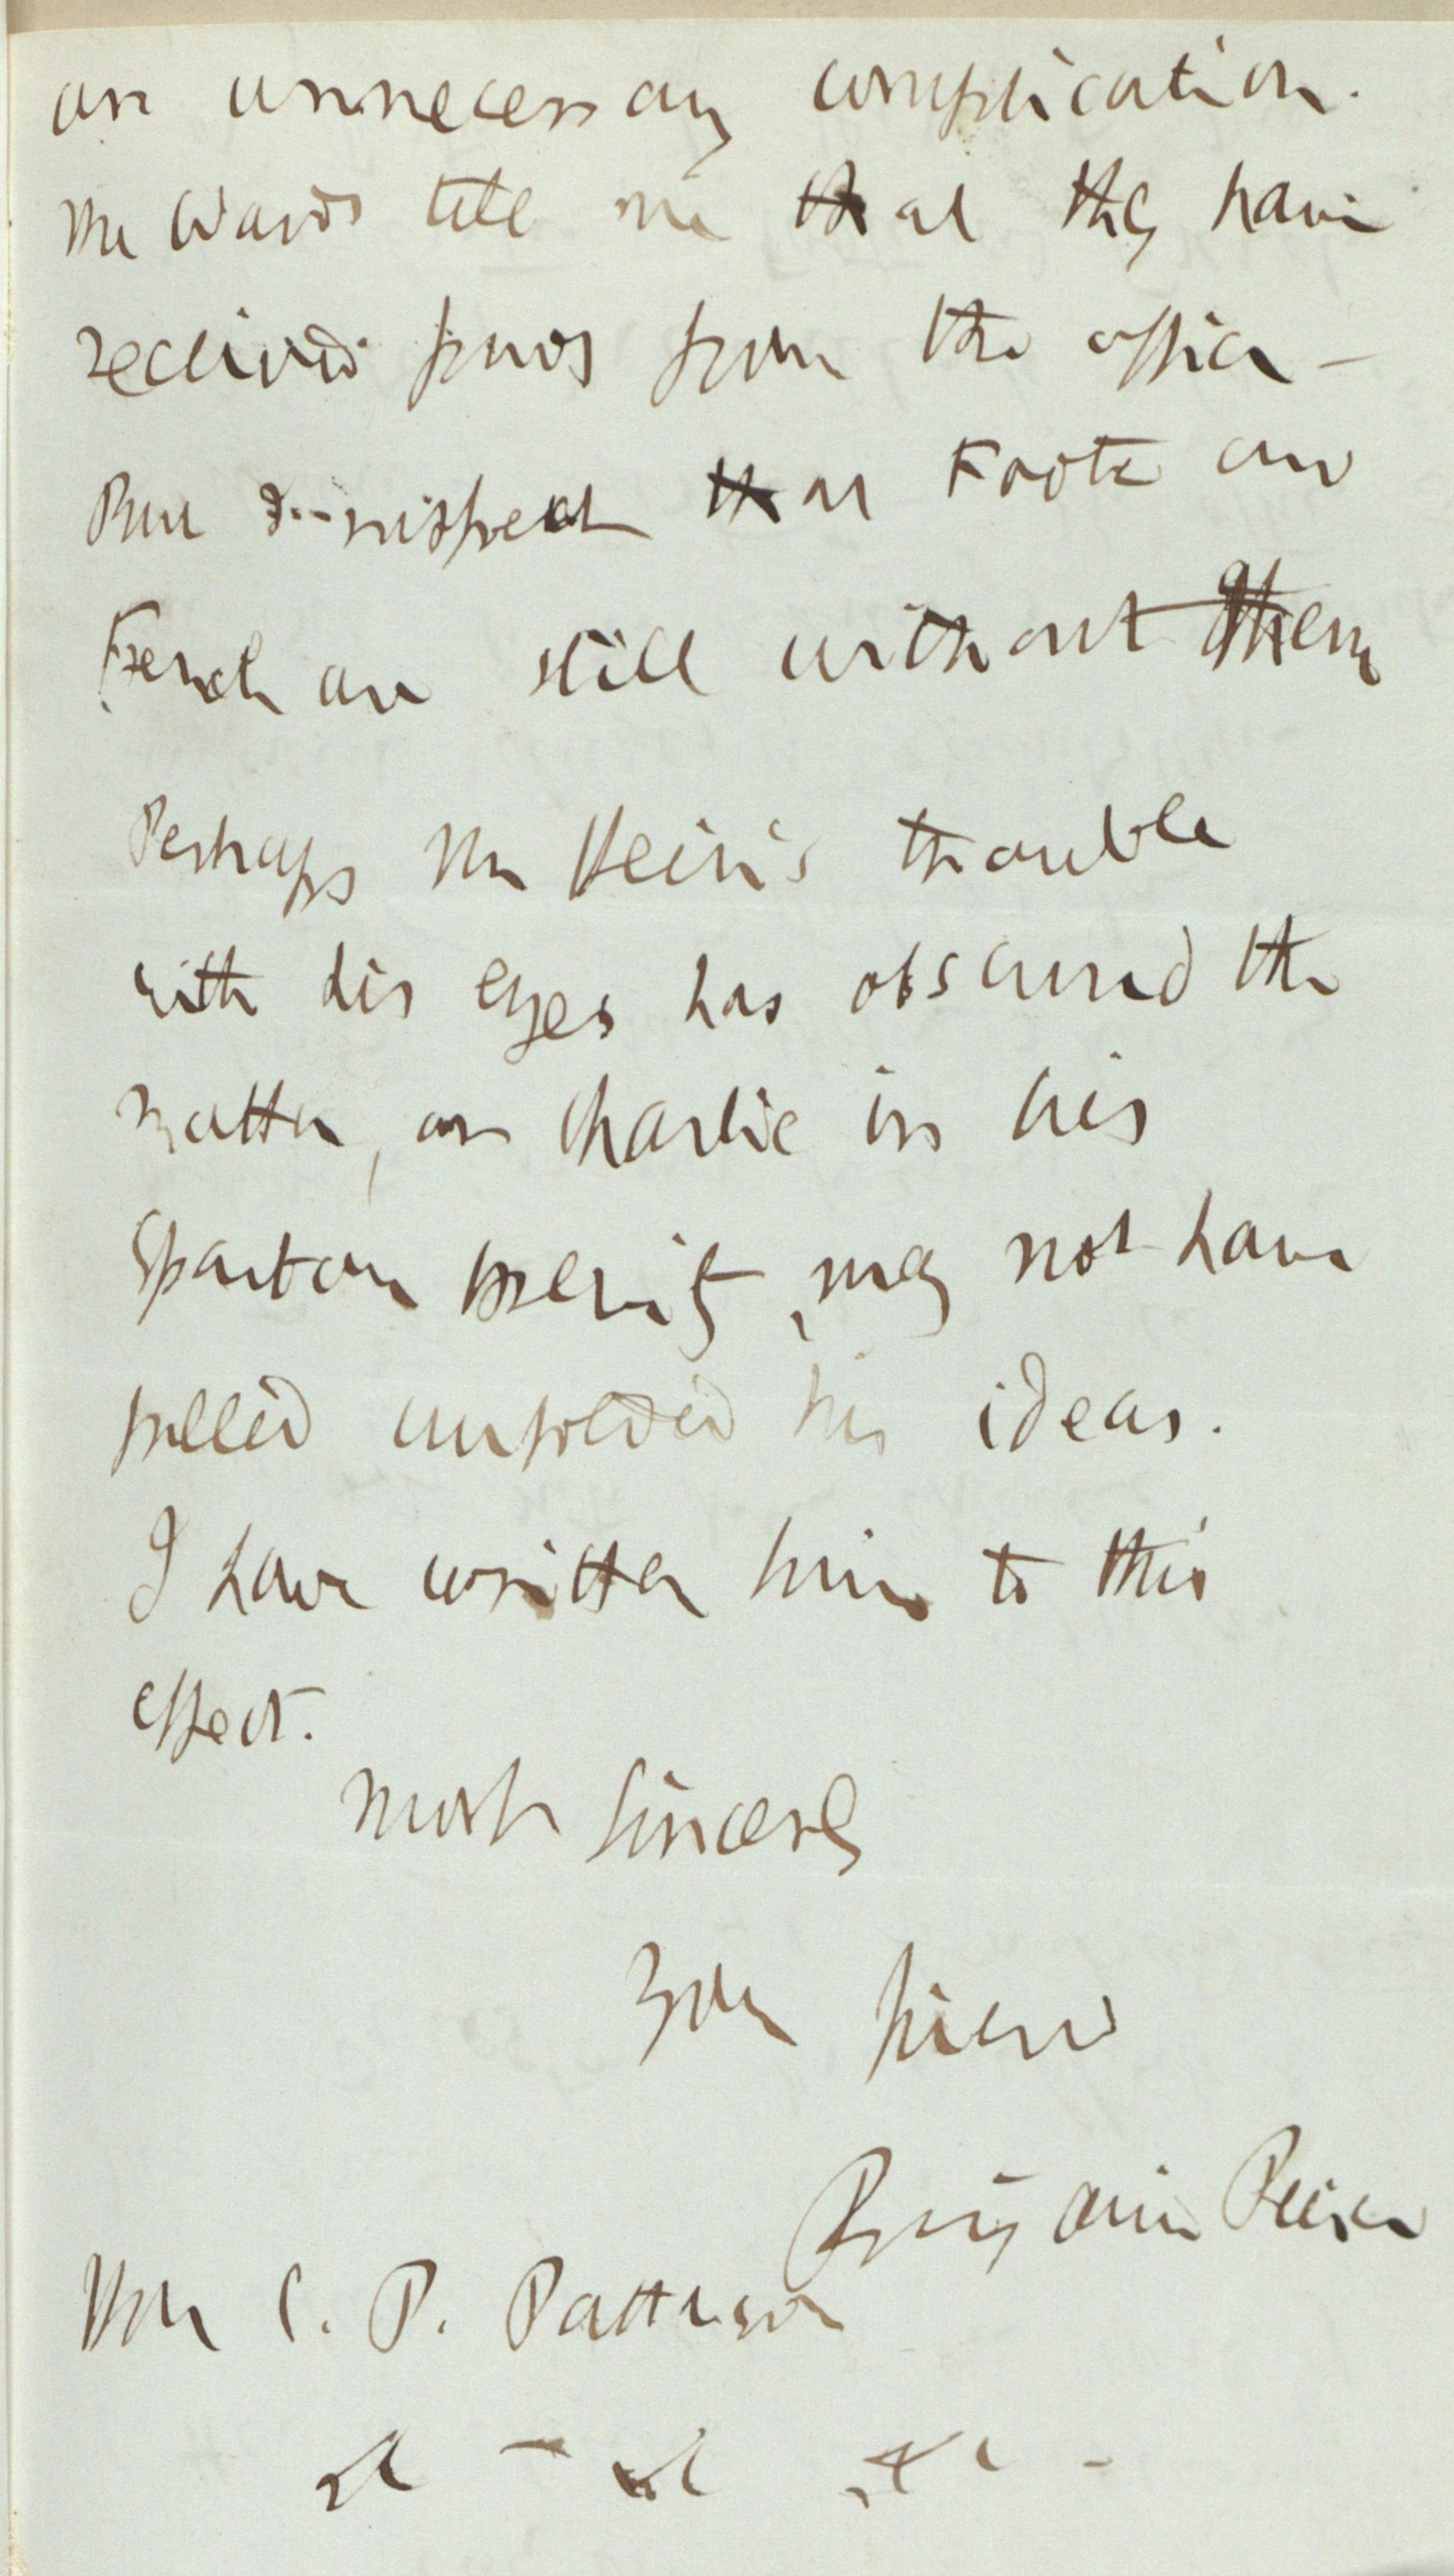 an unnecessary complication.
The Wards tell me that they have
received funds from the office –
But I suspect that Foote and
French are still without them
Perhaps Mr Hein's trouble
with his eyes has obscured the
matter, or Charlie in his
Spartan brevity, may not have
fulled unfolded his ideas.
I have written him to this
effect.
Most sincerely
Your friend
Benjamin Peirce
Hon C. P. Patterson